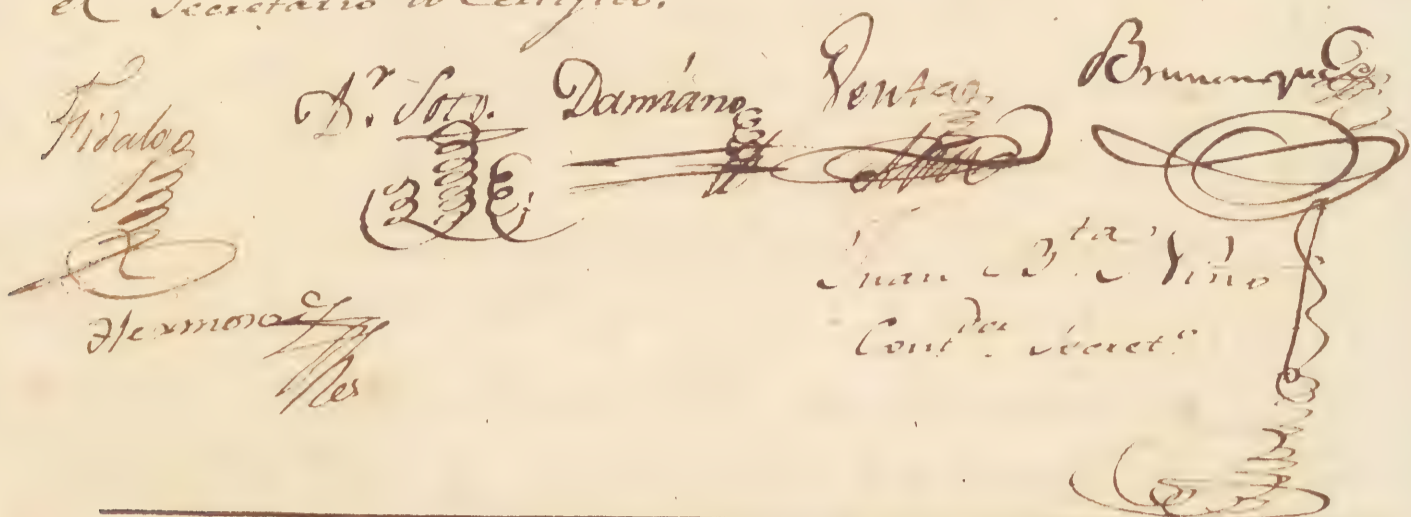 el Secretario lo Certifico.
Fidalgo Dr. Soto. Damiáno Ventas Brunenque
Juan Bta. Viño
Hermosa
Contdor. Secreto.